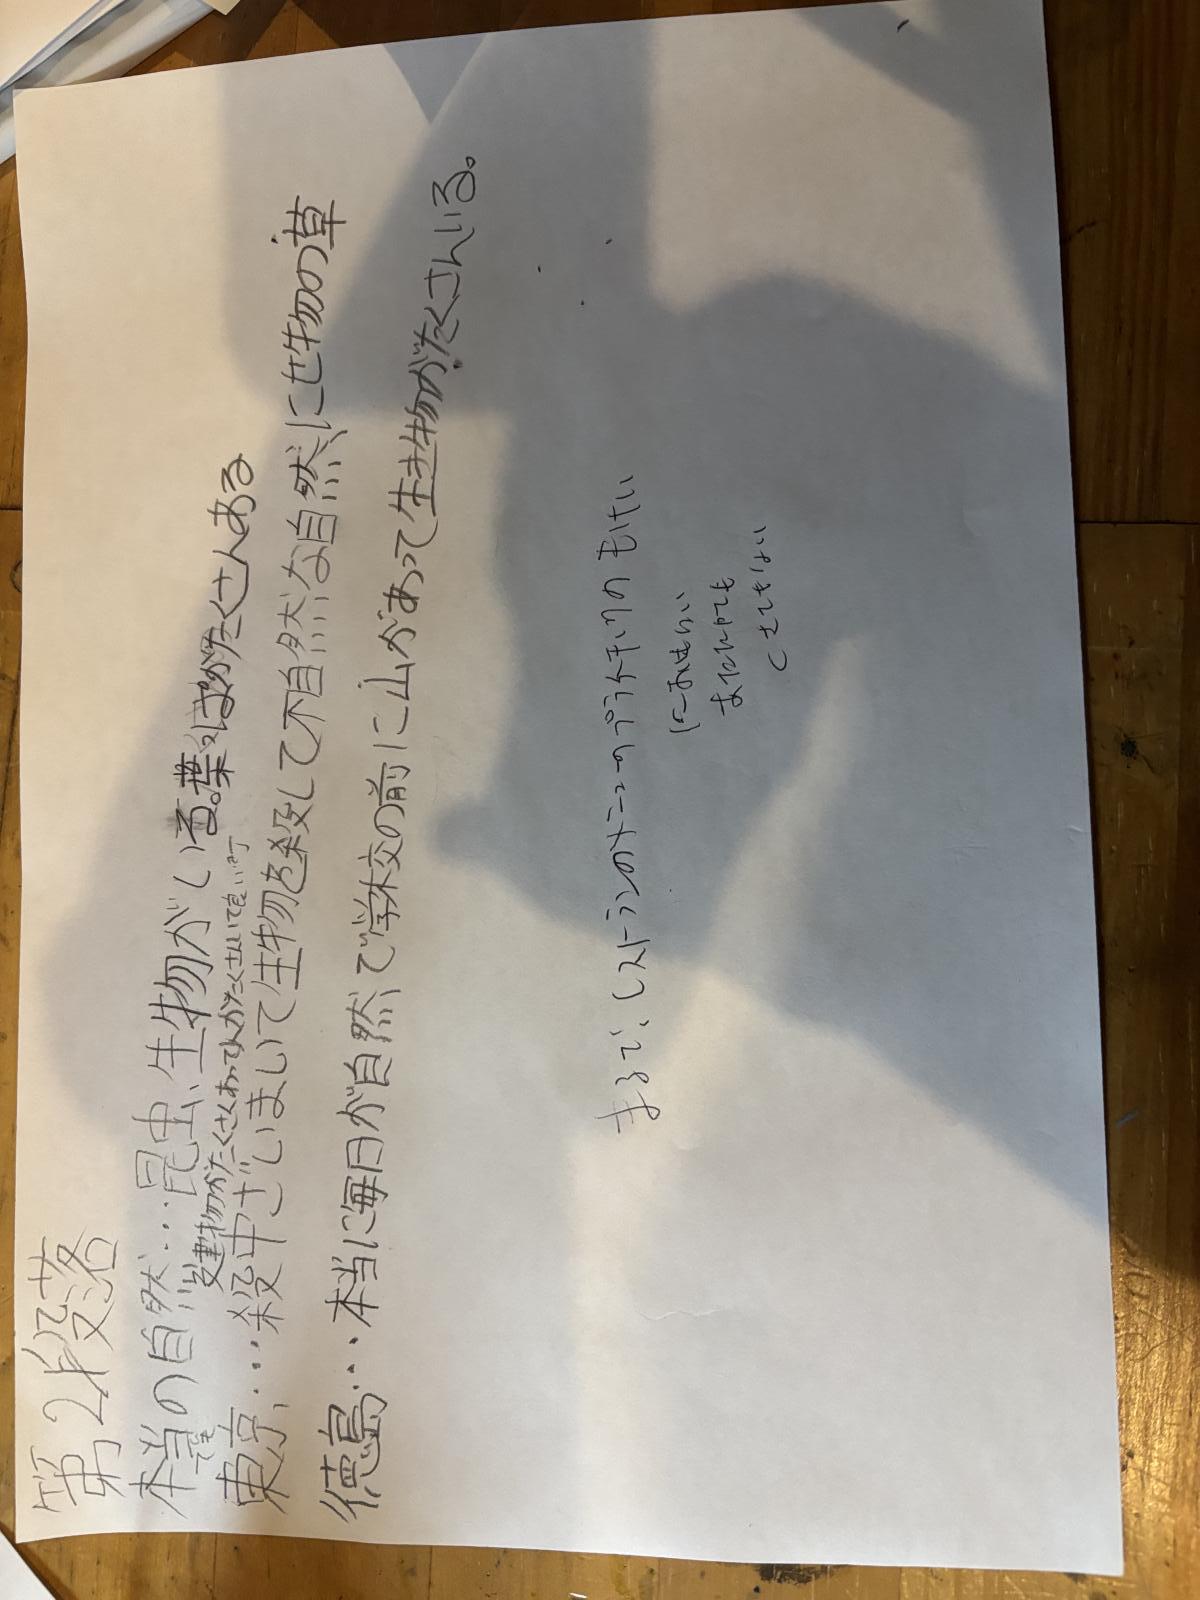 第2段落
本当の自然…昆虫、生物がいる。葉っぱがたくさんある
でも 建物がたくさんあって人がたくさんいて良い町
東京…殺中ざいまいて生物を殺して不自然な自然、にせ物の草
徳島…本当に毎日が自然で学校の前に山があって生き物がたくさんいる。
まるで、レストランのメニューのプラスチックのもけい
においもない
あたたかくても
くさくもない